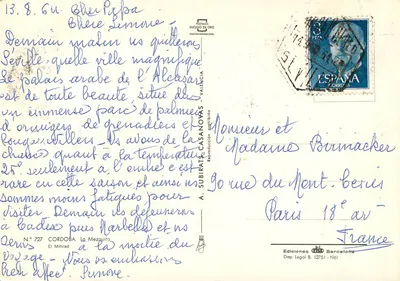 13.8.64 Cher Papa
Chère Simone
Demain matin ns quitterons
Séville quelle ville magnifique
Le palais arabe de l'Alcazar
est de toute beauté situé dans
un immense parc de palmiers
d'orangers de grenadiers et
bougainvilliers. Ns avons de la
chance quant à la température
25° seulement à l'ombre c'est
rare en cette saison et ainsi ns
sommes moins fatigués pour
visiter. Demain ns déjeunerons
à Cadix puis Marbella et ns
serons à la moitié du
voyage. Nous vs embrassons
bien affect. Simone.
N.º 727 CORDOBA. La Mezquita
El Mihrad
A. SUBIRATS CASANOVAS - VALENCIA
3
PTAS
CORREOS
ESPAÑA
Monsieur et
Madame Birmacker
90 rue du Mont-Cenis
Paris 18e arr
France
Ediciones Barcelona
Dep. Legal B. 12751-1961